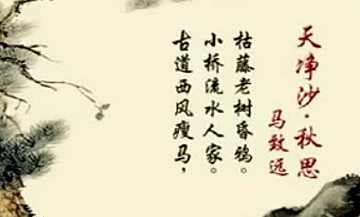 天净沙·秋思
马致远
枯藤老树昏鸦。
小桥流水人家。
古道西风瘦马，